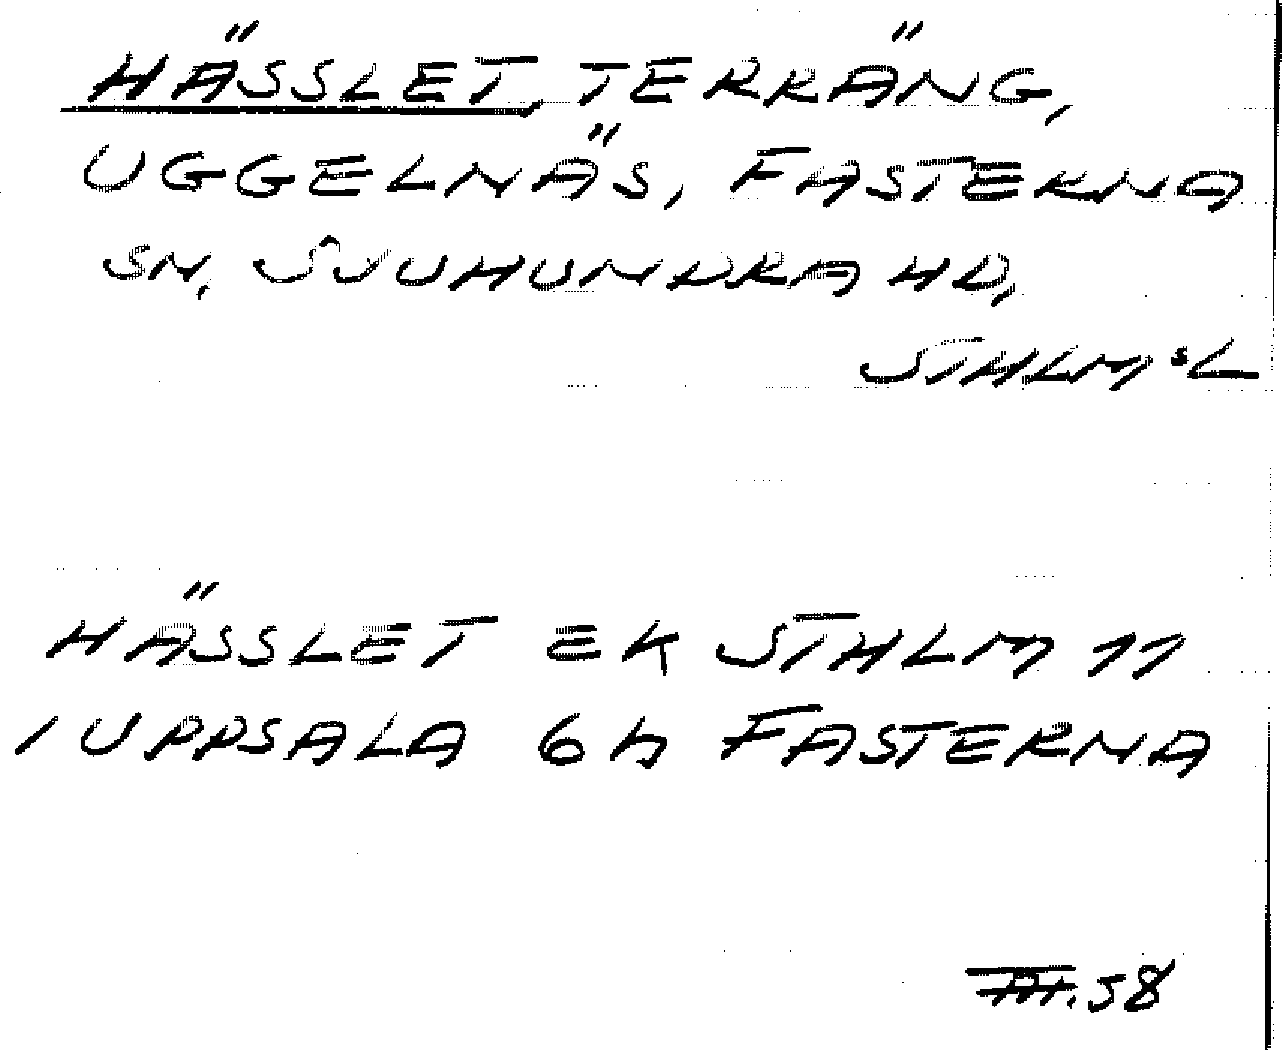 HÄSSLET, TERRÄNG,
UGGELNÄS, FASTERNA
SN, SJUHUNDRA HD,
STHLMsL
HÄSSLET EK STHLM 11
I UPPSALA 6h FASTERNA
58